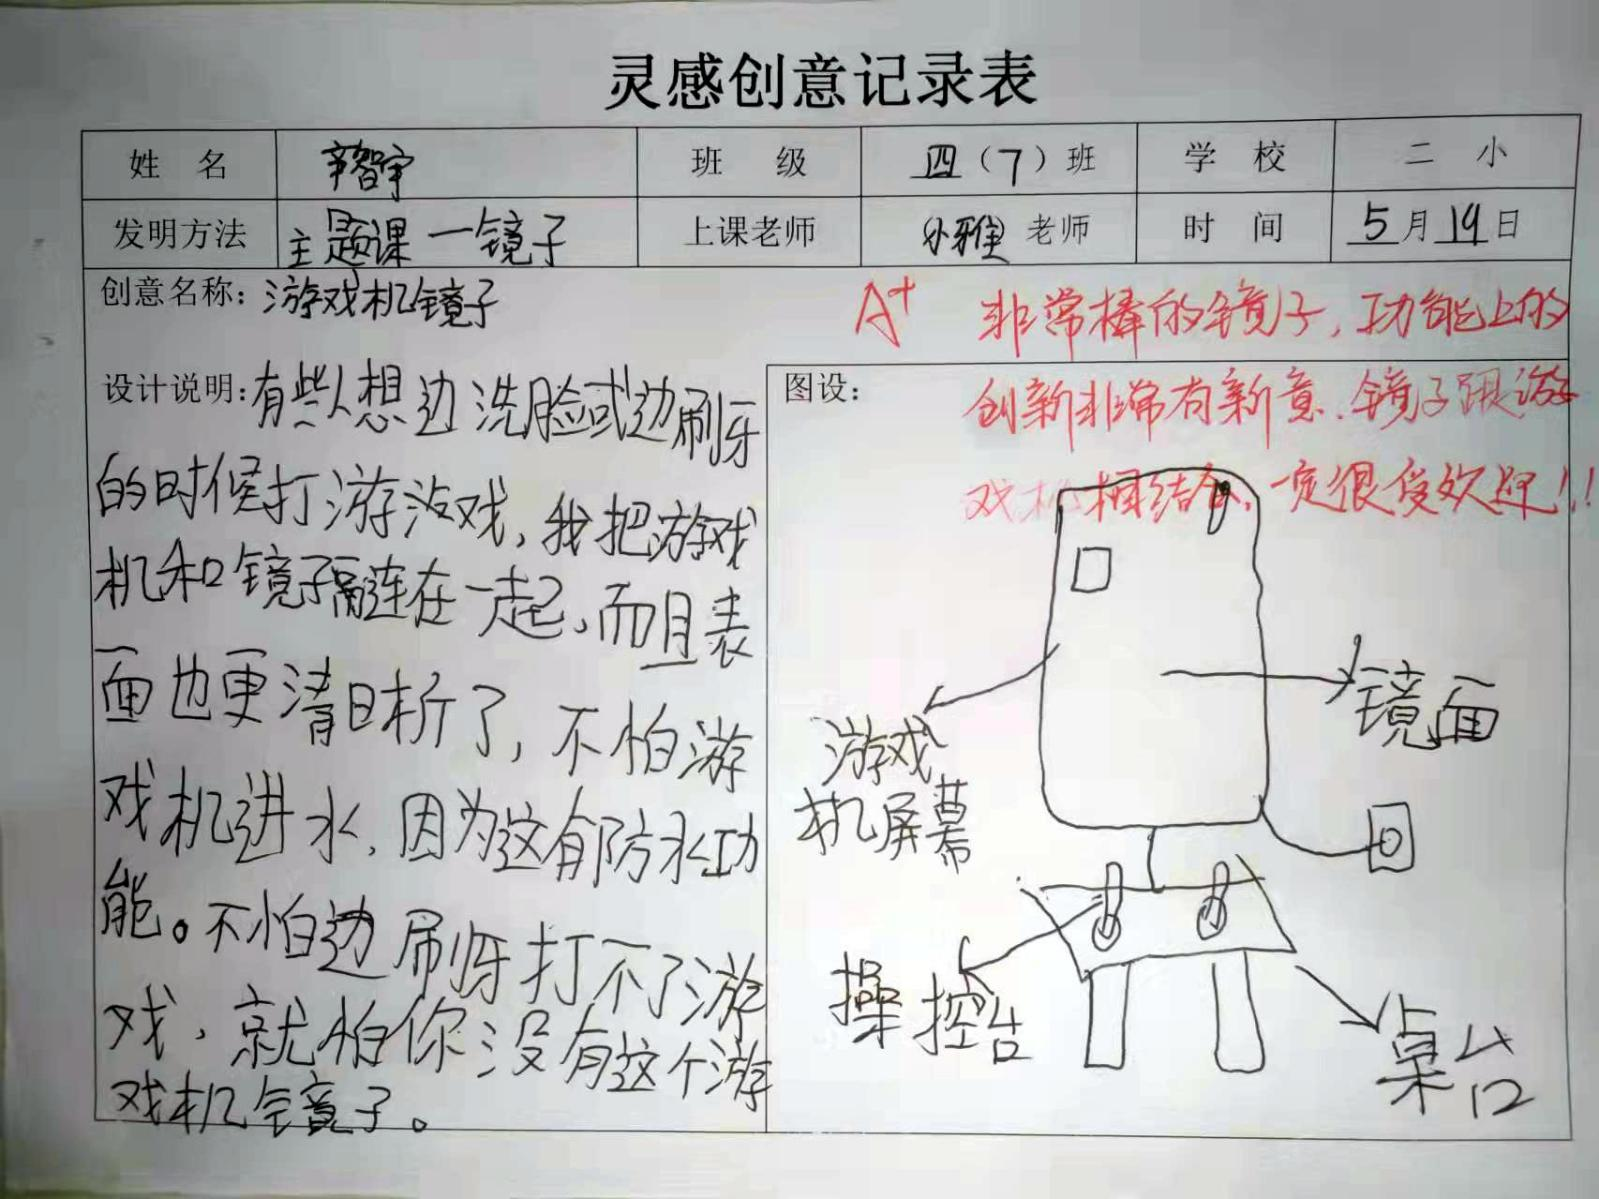 灵感创意记录表
姓 名 辛智宇 班 级 四（7）班 学 校 二 小
发明方法 主题课一镜子 上课老师 小雅 老师 时 间 5月19日
创意名称：游戏机镜子
A+ 非常棒的镜子，功能上的
创新非常有新意．镜子跟游
戏机相结合，一定很受欢迎！！
设计说明：有些人想边洗脸或边刷牙
的时候打游戏，我把游戏
机和镜子连在一起，而且表
面也更清晰了，不怕游
戏机进水，因为这有防水功
能。不怕边刷牙打不了游
戏，就怕你没有这个游
戏机镜子。
图设：
镜面
游戏
机屏幕
操控台
桌台